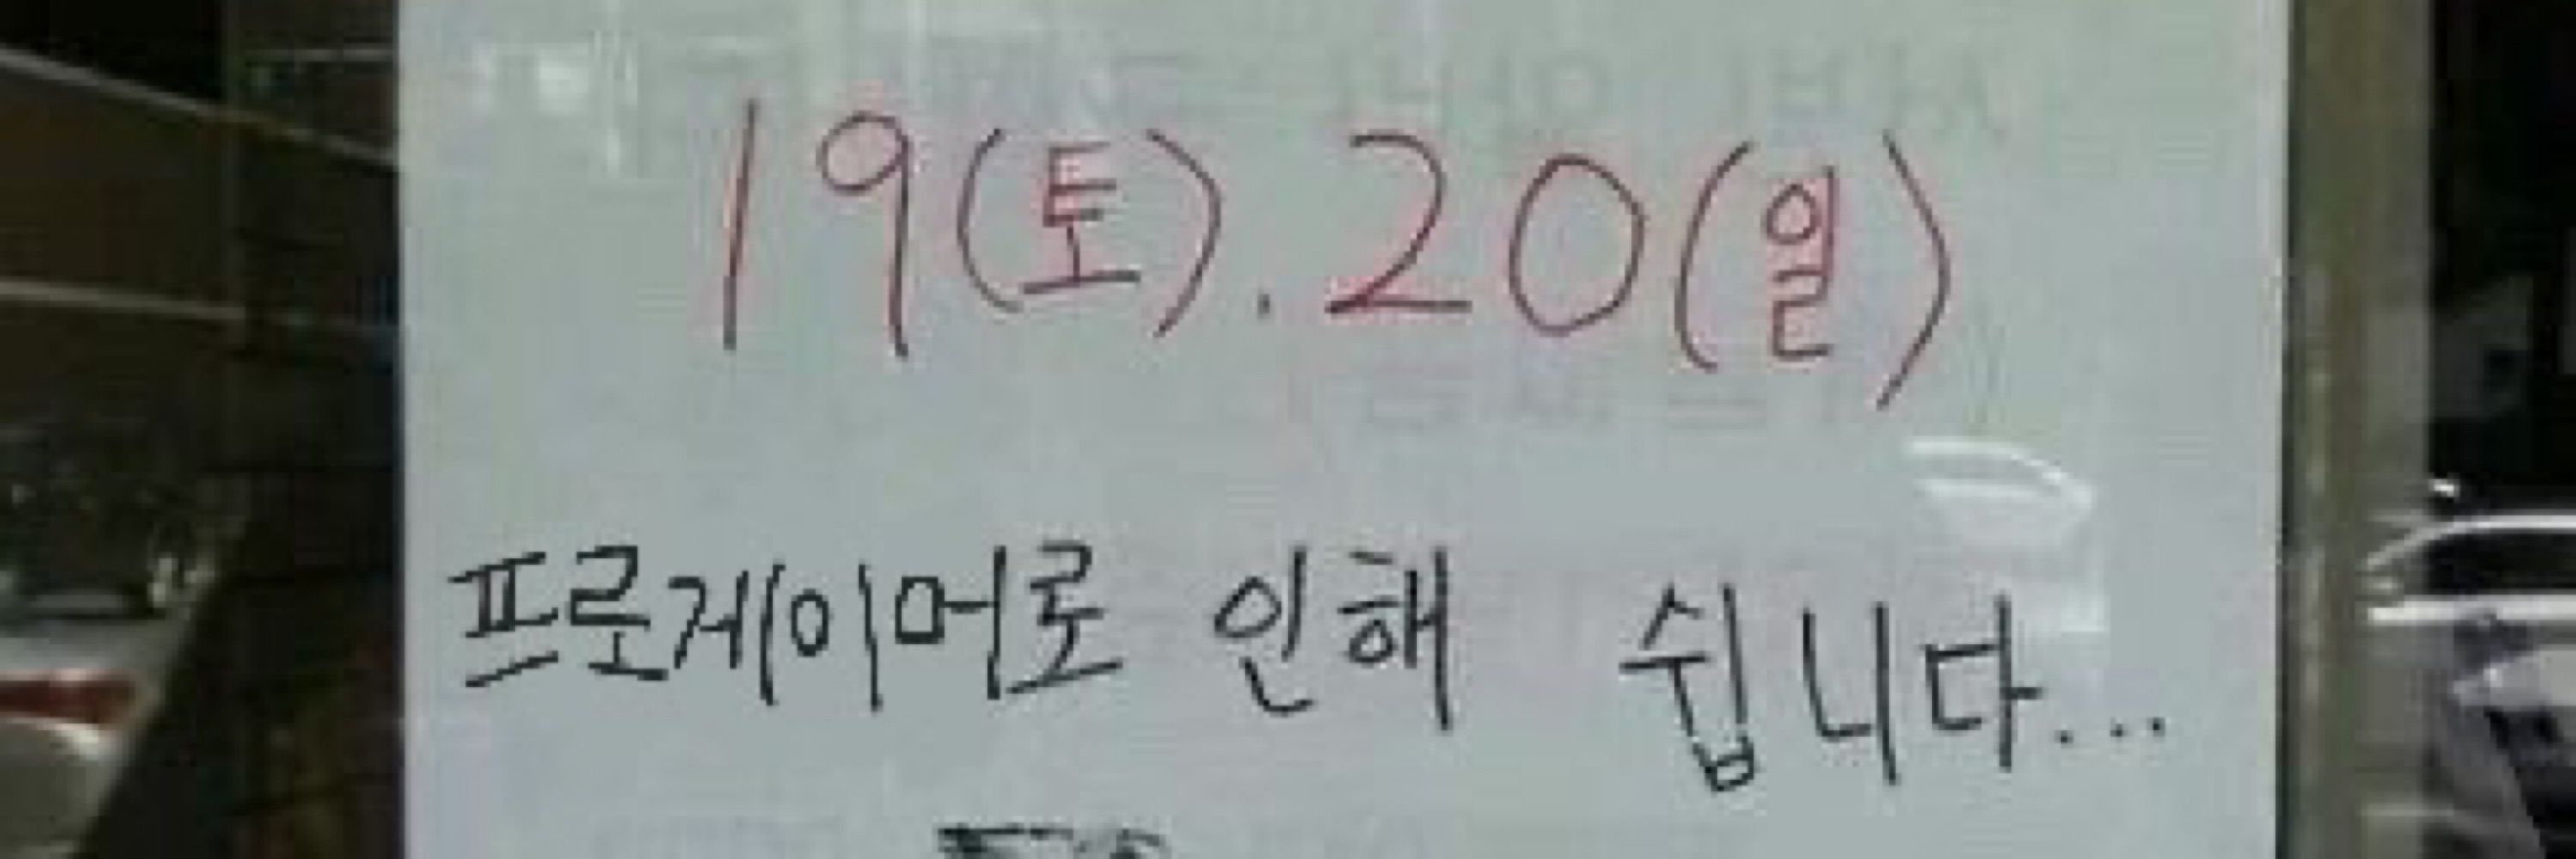 19(토). 20(일)
프로게이머로 인해 쉽니다...